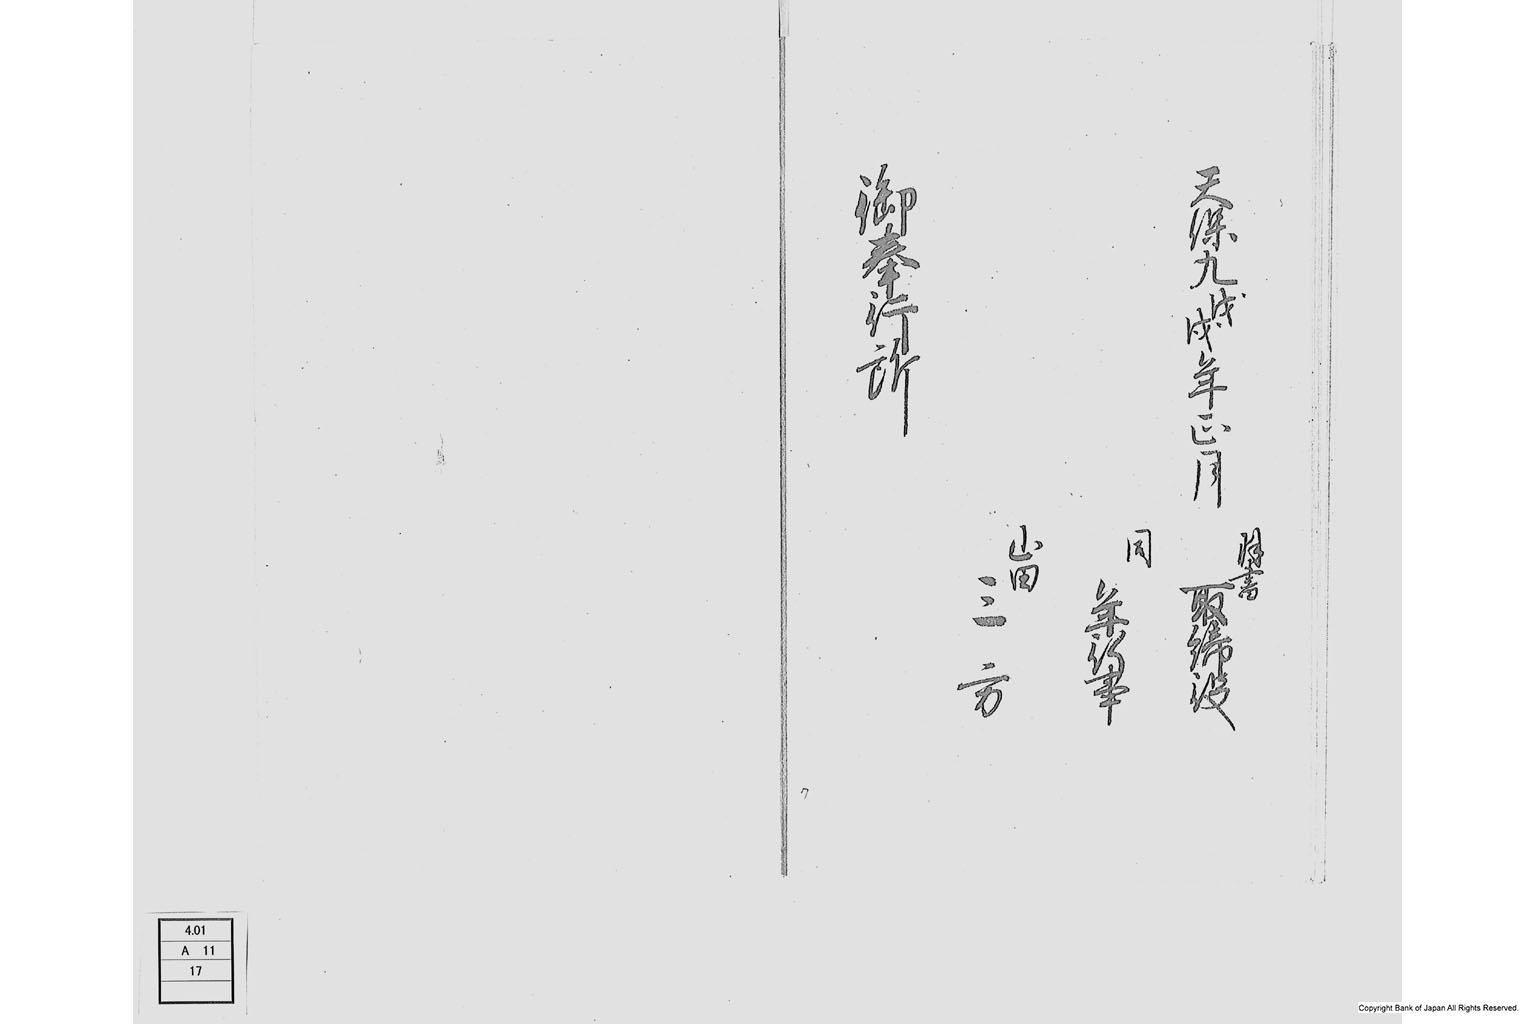 天保九戊戌年正月
羽書
取締役
同
年行事
山田
三方
御奉行所
7
4.01
A 11
17
Copyright Bank of Japan All Rights Reserved.